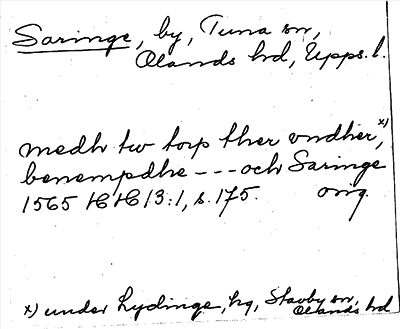 Saringe, by, Tuna sn,
Olands hd, Upps. l.
medh tw torp ther vndher, x)
benempdhe --- och Saringe
1565 HH 13:1, s. 175. orig.
x) under Lydinge, hg, Stavby sn, Olands hd